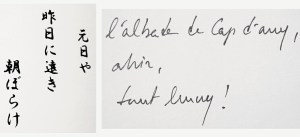 元日や
昨日に遠き
朝ぼらけ
l'albada de Cap d'any,
ahir,
lluny!